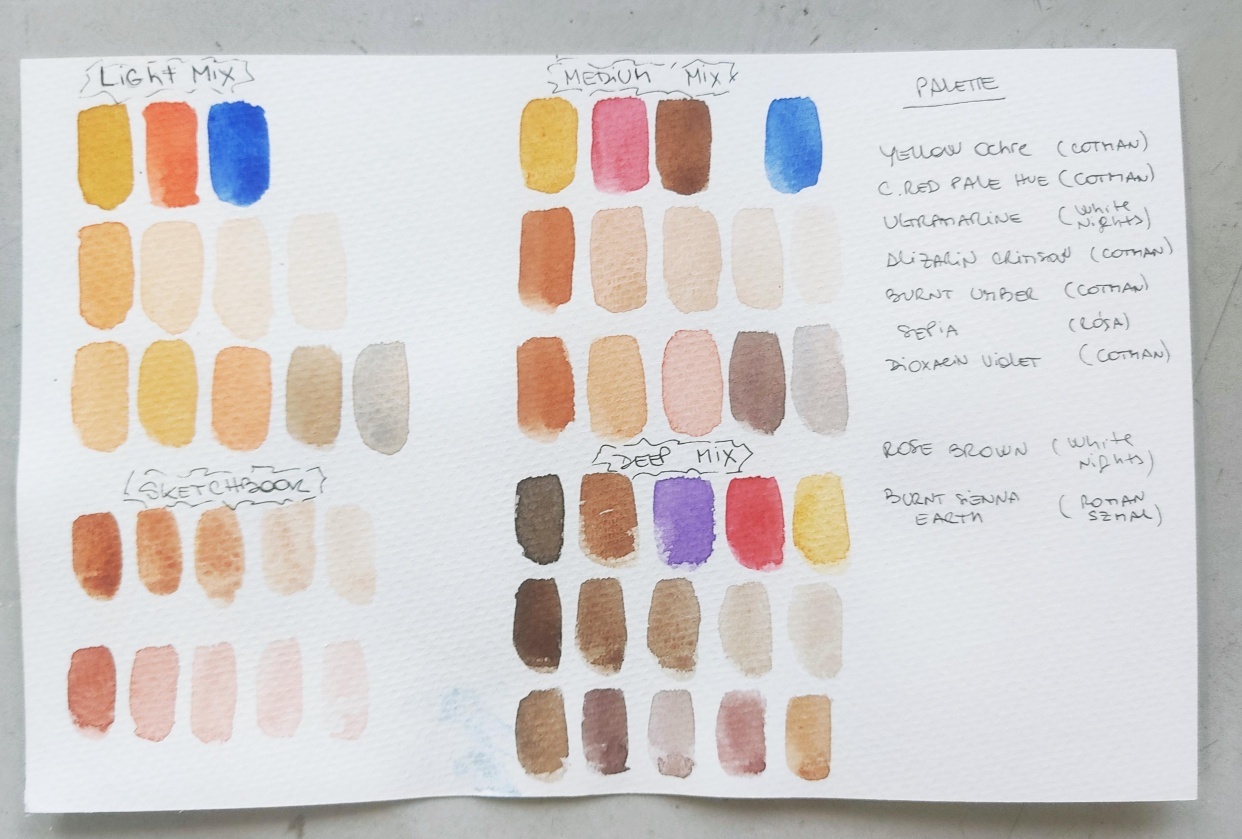 LIGHT MIX
MEDIUM MIX
SKETCHBOOK
DEEP MIX
PALETTE
YELLOW OCHRE (COTMAN)
C.RED PALE HUE (COTMAN)
ULTRAMARINE (WHITE
NIGHTS)
ALIZARIN CRIMSON (COTMAN)
BURNT UMBER (COTMAN)
SEPIA (RÓSA)
DIOXAZIN VIOLET (COTMAN)
ROSE BROWN (WHITE
NIGHTS)
BURNT SIENNA (ROMAN
EARTH SZMAL)